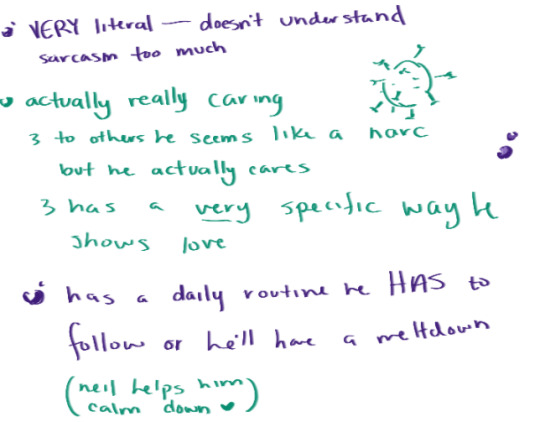 VERY literal — doesn't understand
sarcasm too much
actually really caring
3 to others he seems like a narc
but he actually cares
3 has a very specific way he
shows love
has a daily routine he HAS to
follow or he'll have a meltdown
(neil helps him
calm down ♥)